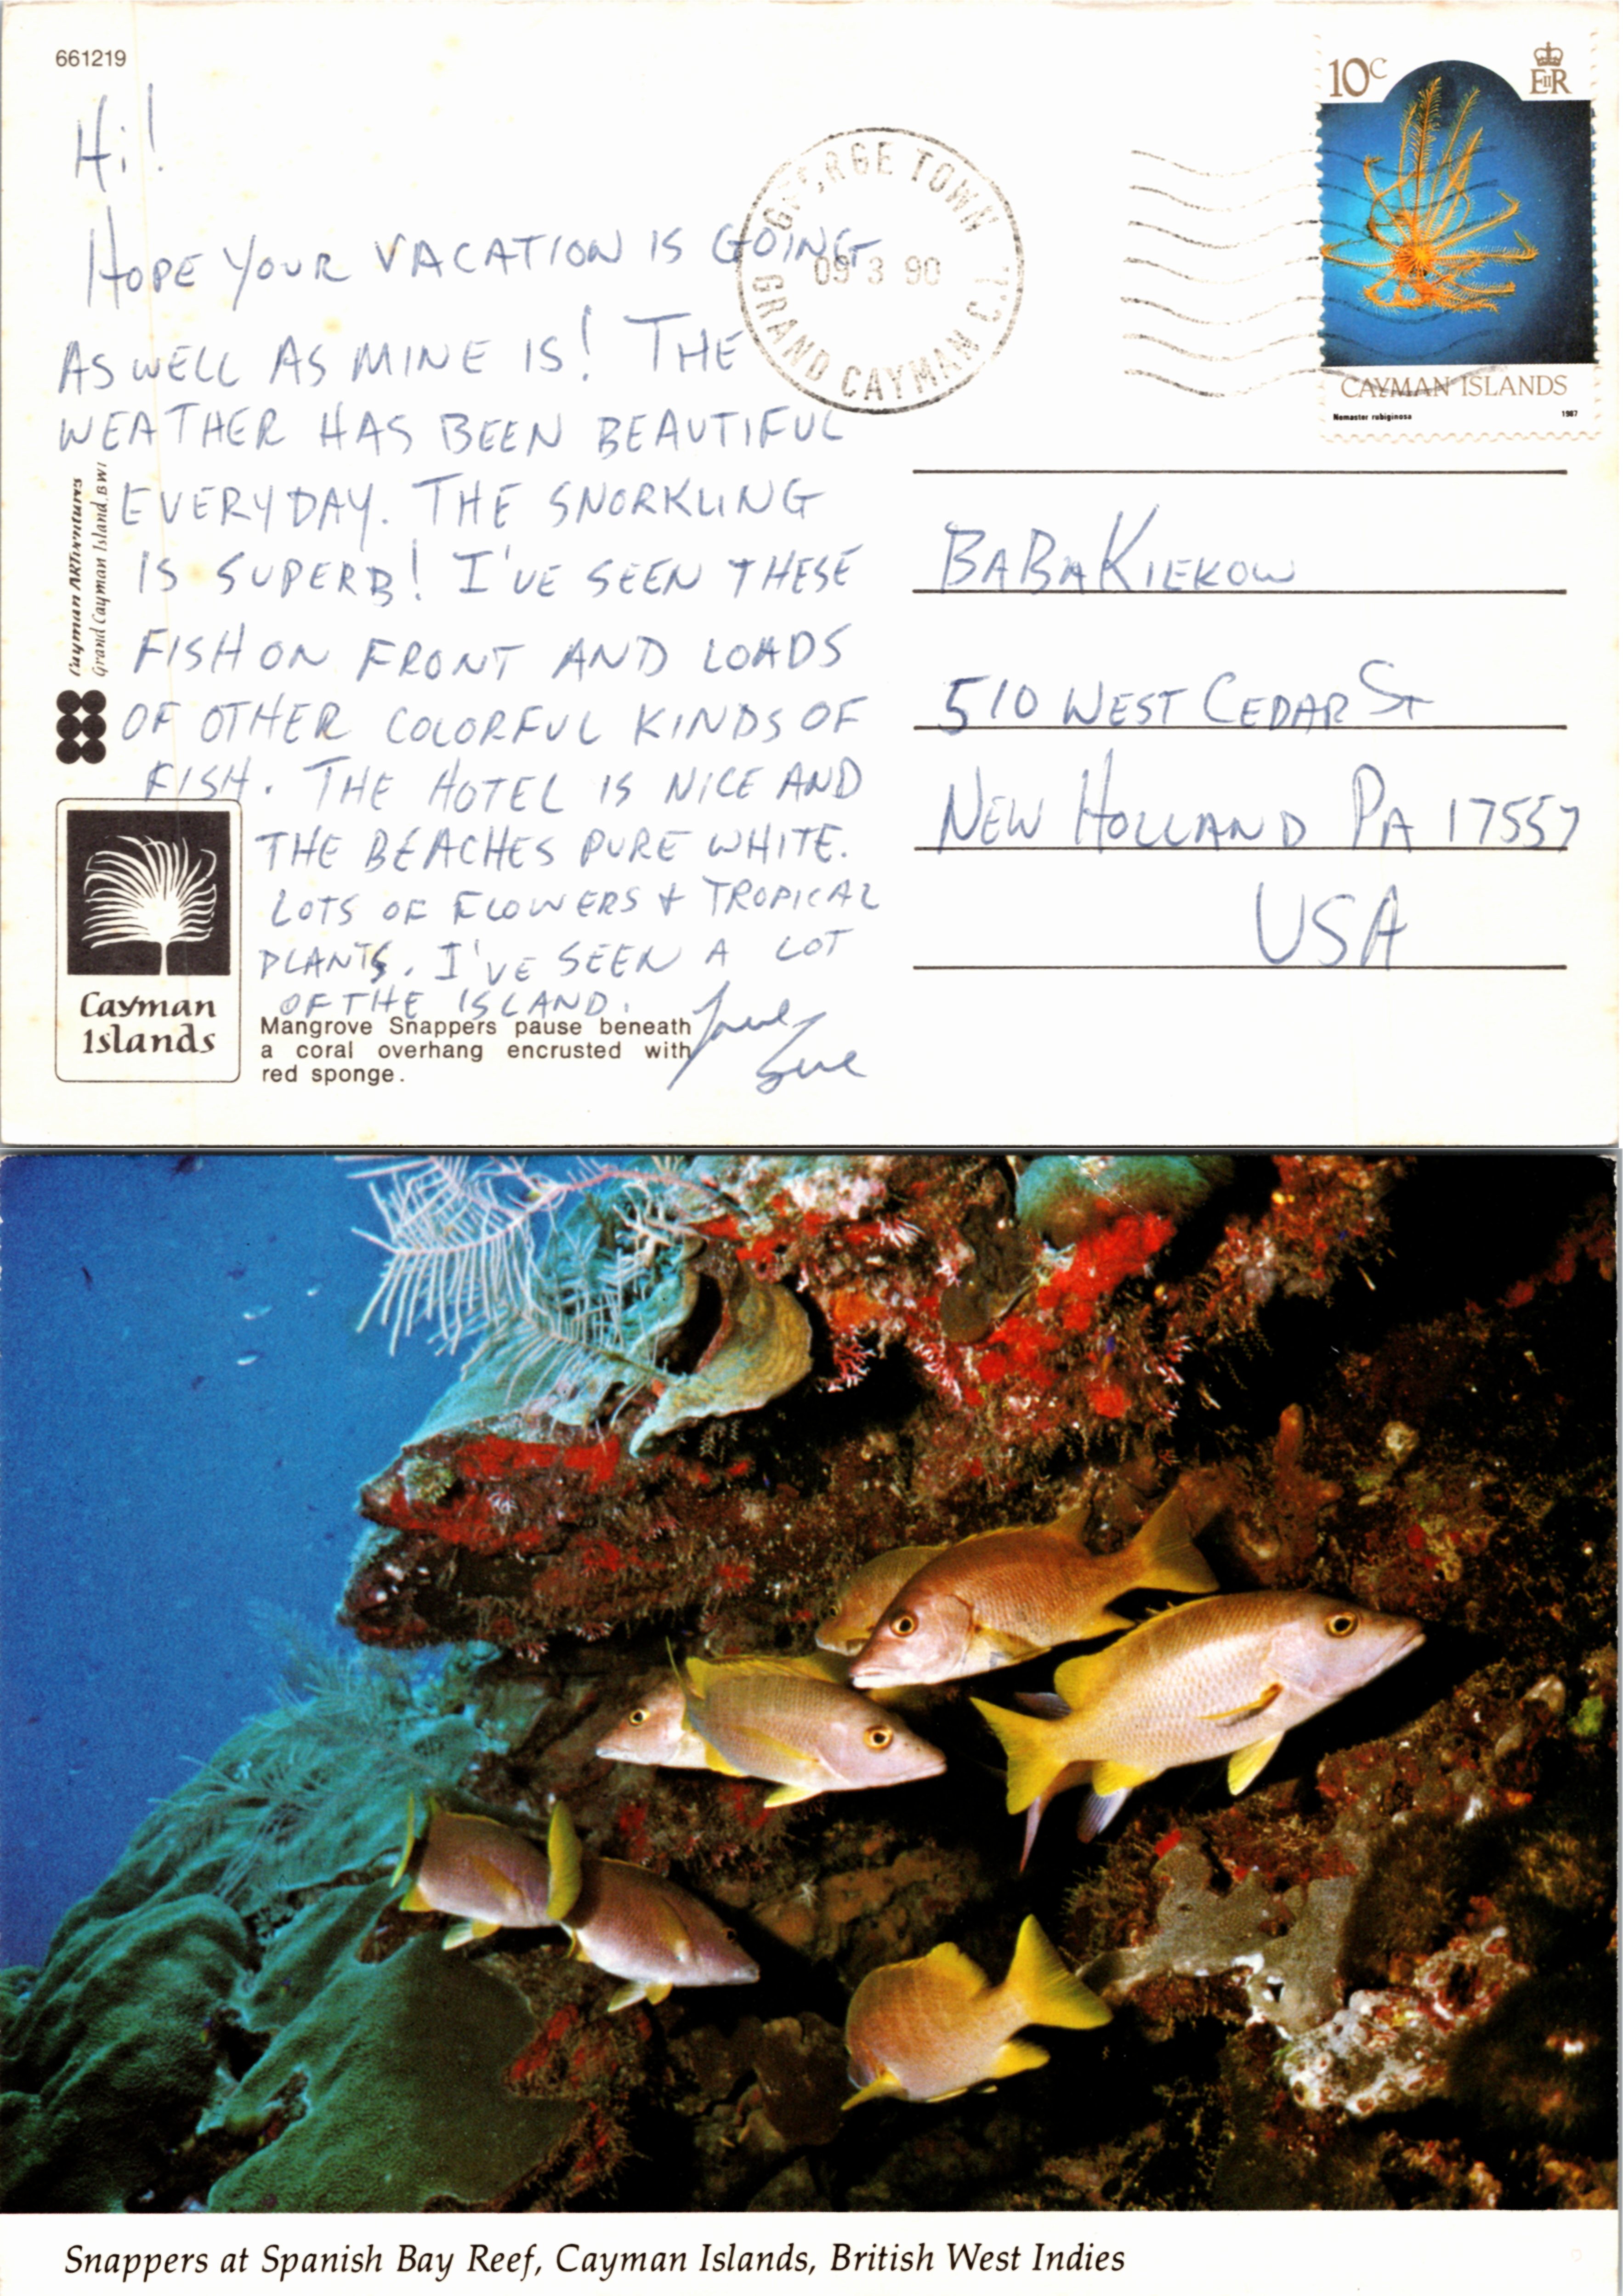 661219
10c
EIIR
CAYMAN ISLANDS
Nemaster rubiginosa 1987
GEORGE TOWN
09 3 90
GRAND CAYMAN C.I.
Hi!
HOPE YOUR VACATION IS GOING
AS WELL AS MINE IS! THE
WEATHER HAS BEEN BEAUTIFUL
EVERYDAY. THE SNORKLING
IS SUPERB! I'VE SEEN THESE
FISH ON FRONT AND LOADS
OF OTHER COLORFUL KINDS OF
FISH. THE HOTEL IS NICE AND
THE BEACHES PURE WHITE.
LOTS OF FLOWERS + TROPICAL
PLANTS. I'VE SEEN A LOT
OF THE ISLAND.
Love
Sue
BABA KIEKOW
510 WEST CEDAR ST
NEW HOLLAND PA 17557
USA
Cayman ARTventures
Grand Cayman Island, BWI
Cayman
Islands
Mangrove Snappers pause beneath
a coral overhang encrusted with
red sponge.
Snappers at Spanish Bay Reef, Cayman Islands, British West Indies